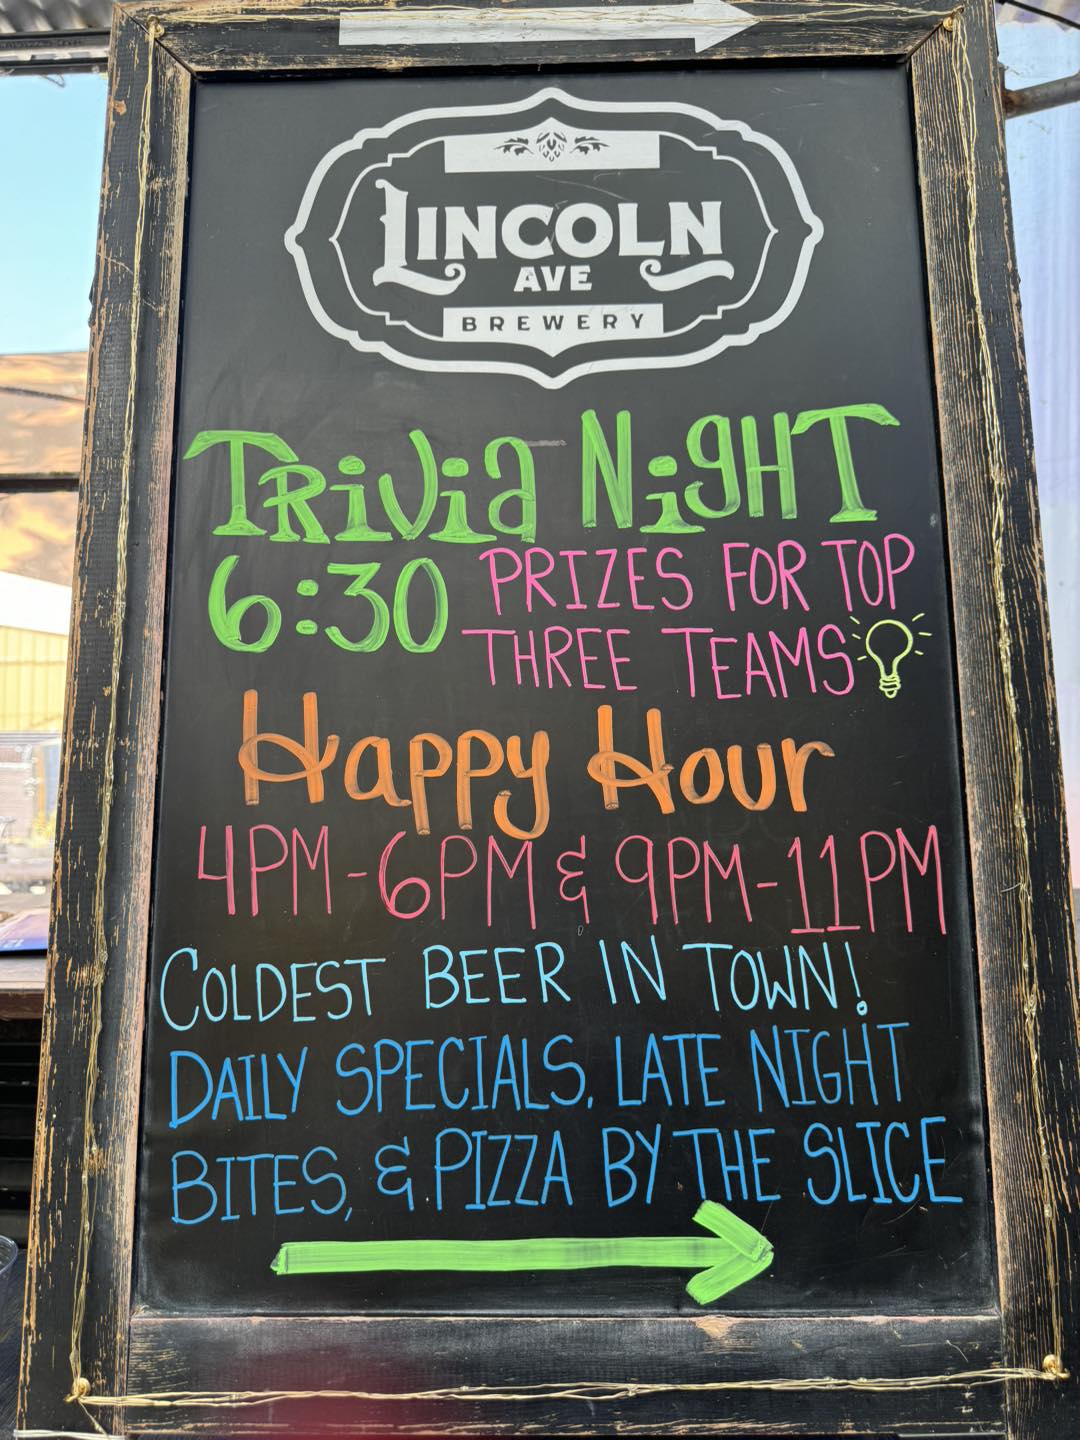 LINCOLN
AVE
BREWERY
TRiVia NigHT
6:30 PRIZES FOR TOP
THREE TEAMS
Happy Hour
4PM-6PM & 9PM-11PM
COLDEST BEER IN TOWN!
DAILY SPECIALS, LATE NIGHT
BITES, & PIZZA BY THE SLICE